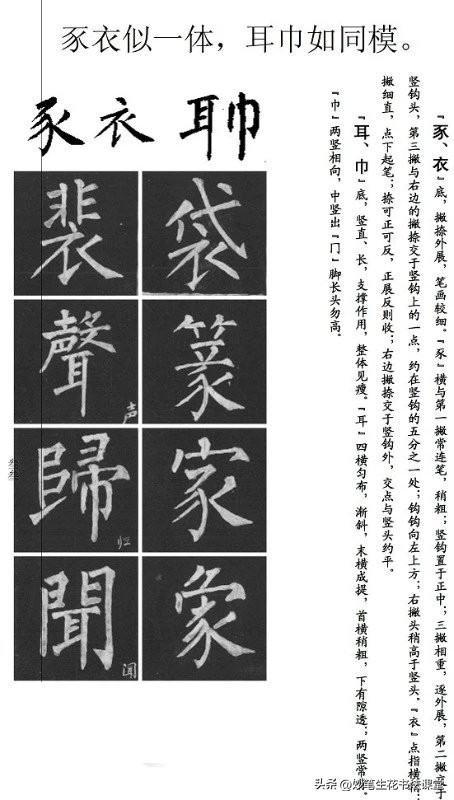 豕衣似一体，耳巾如同模。
豕 衣 耳 巾
袋 裴
篆 聲 声
家 歸 归
象 聞 闻
叁叁
『豕、衣』底，撇捺外展，笔画较细。『豕』横与第一撇常连笔，稍粗；竖钩置于正中；三撇相重，逐外展，第二撇交于
竖钩头，第三撇与右边的撇捺交于竖钩上的一点，约在竖钩的五分之一处；钩钩向左上方；右撇头稍高于竖头。『衣』点指横
撇细直，点下起笔；捺可正可反，正展反则收；右边撇捺交于竖钩外，交点与竖头约平。
『耳、巾』底，竖直、长，支撑作用，整体见瘦。『耳』四横匀布，渐斜，末横成提，首横稍粗，下有隙透；两竖常
『巾』两竖相向，中竖出『冂』脚长头勿高。
头条@妙笔生花书法课堂